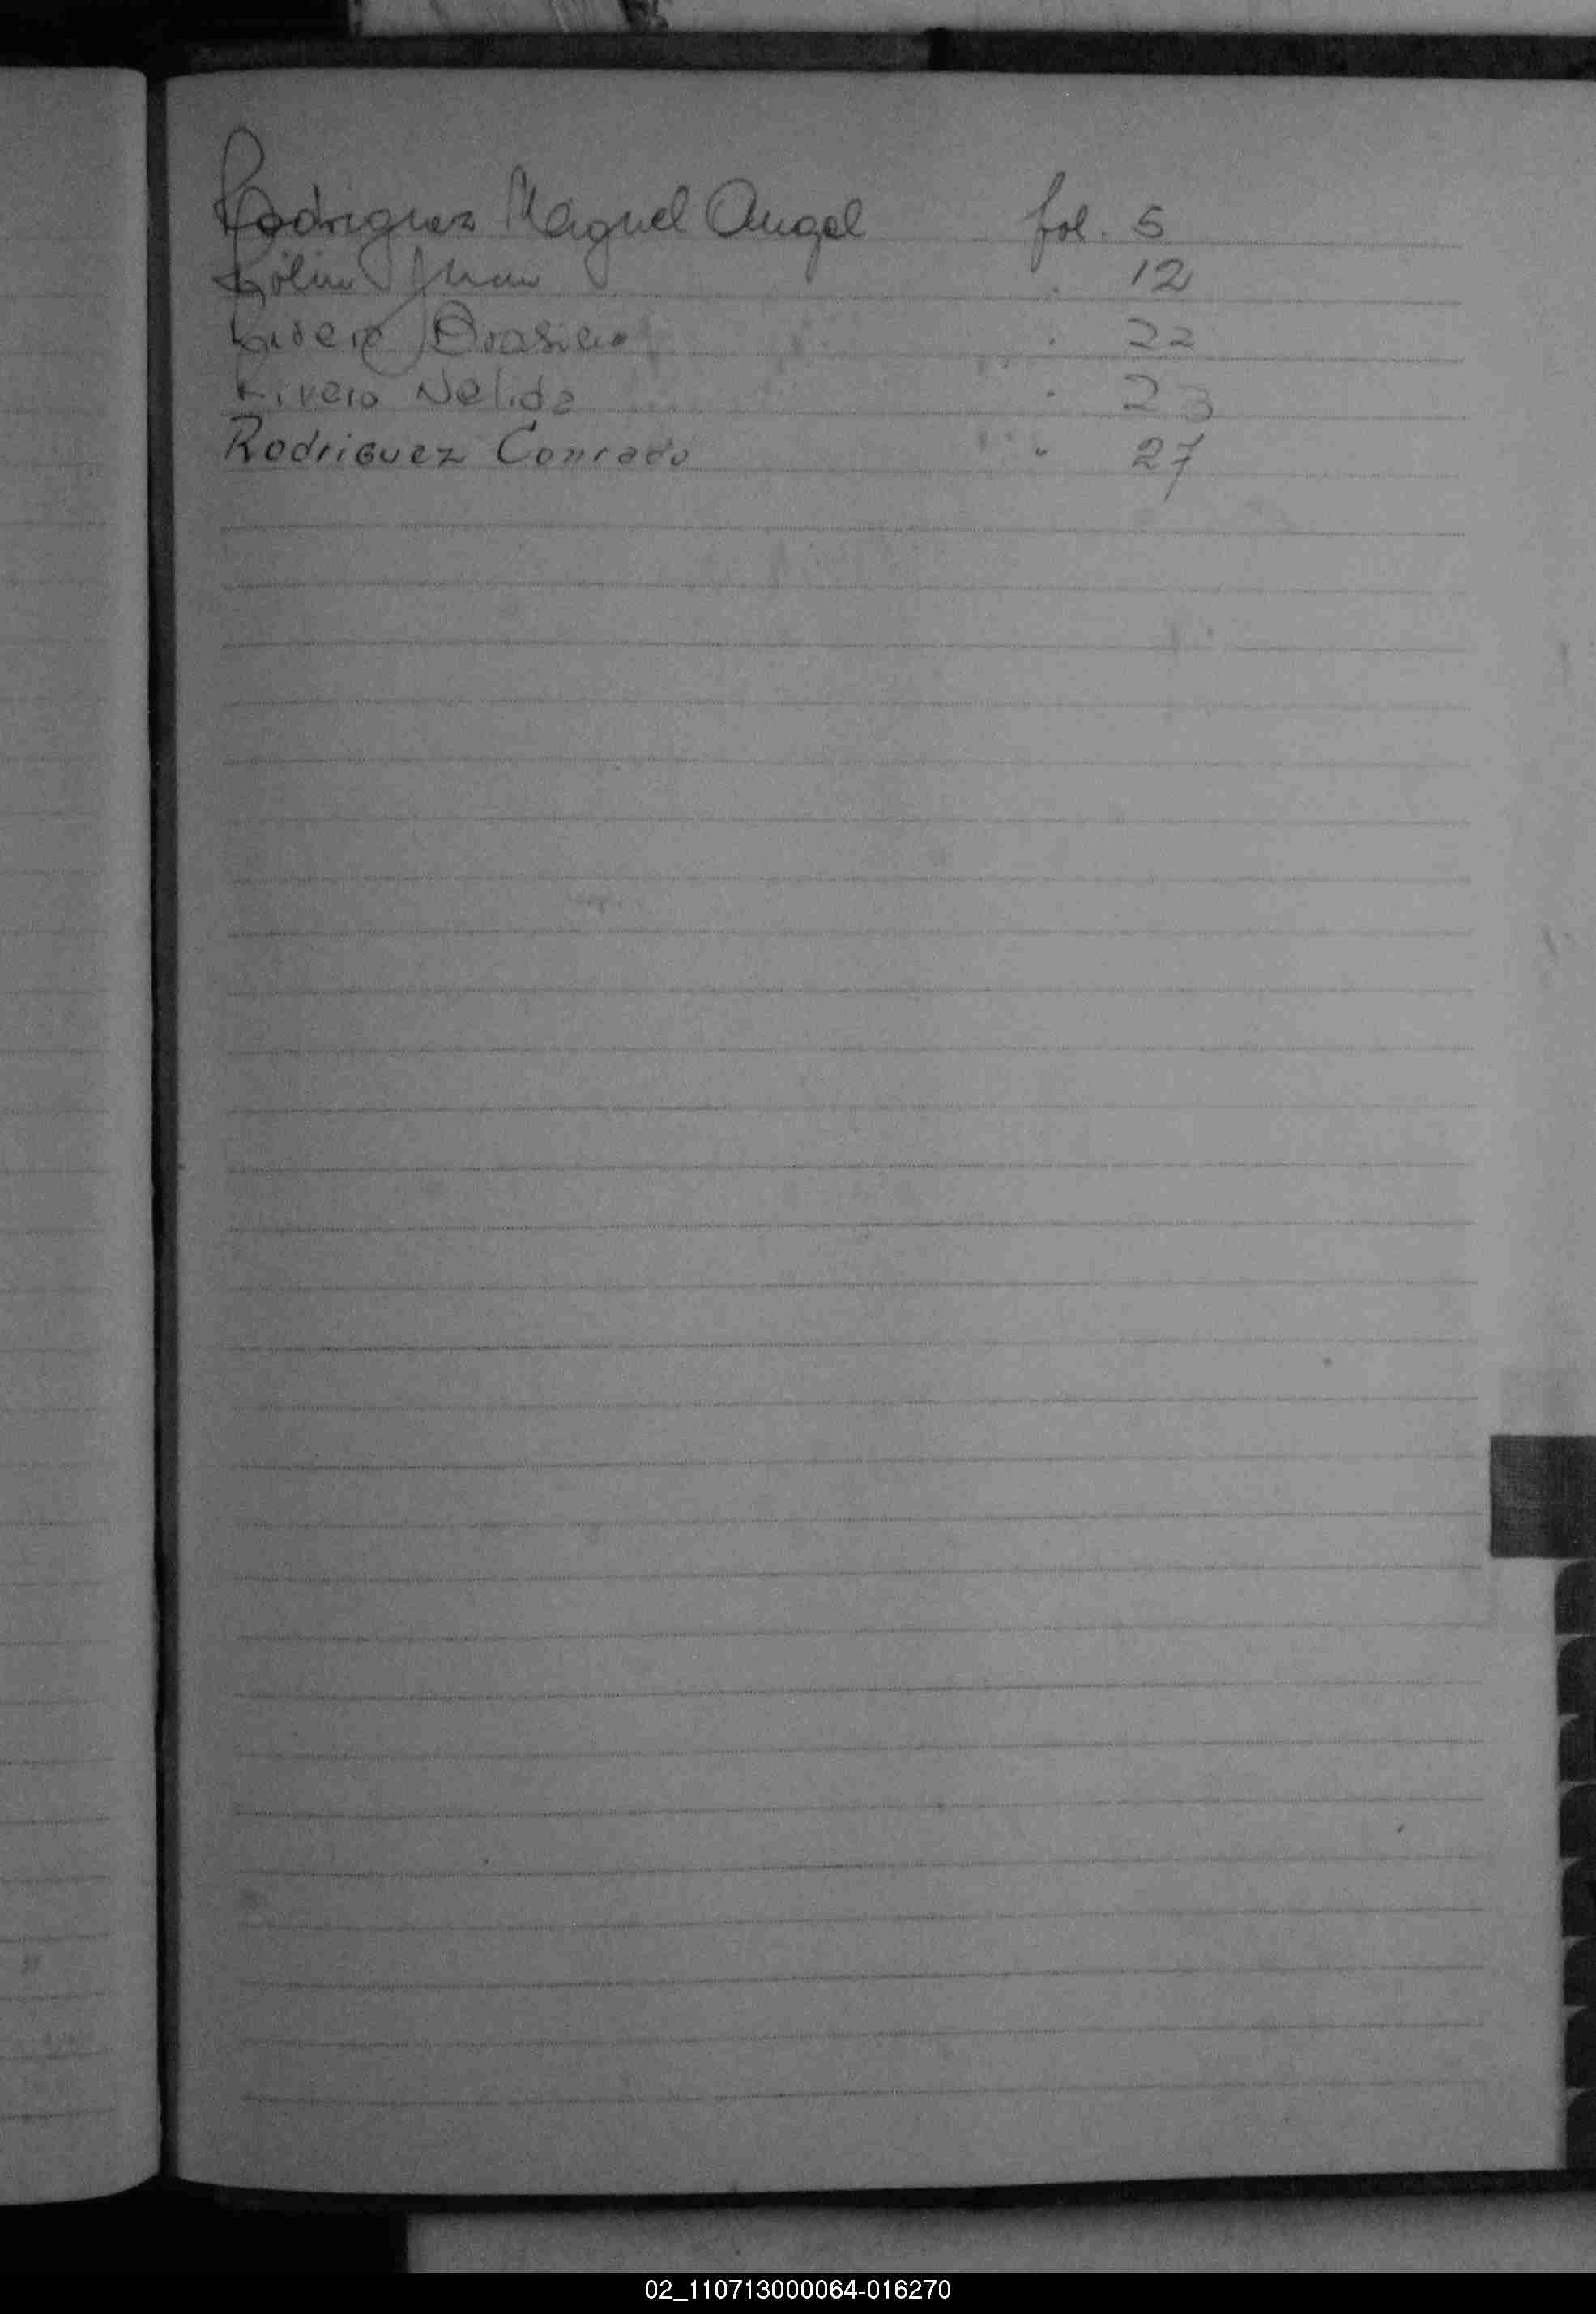 Rodriguez Miguel Angel fol. 5
Juan . 12
Rivero Brasilio . 22
Rivero Nelida . 23
Rodriguez Conrado " 27
02_110713000064-016270